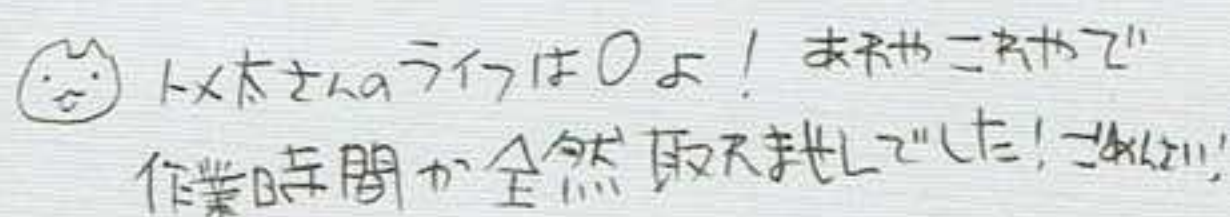 トメ太さんのライフは0よ！あれやこれやで
作業時間が全然取れませんでした！ごめんなさい！